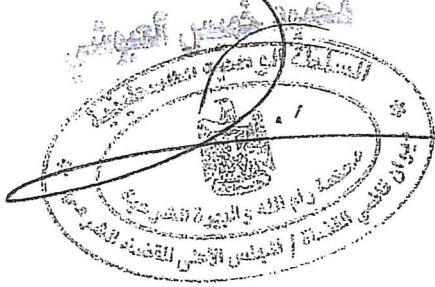 السلطة الوطنية الفلسطينية
محكمة رام الله والبيرة الشرعية
ديوان قاضي القضاة / المجلس الأعلى للقضاء الشرعي